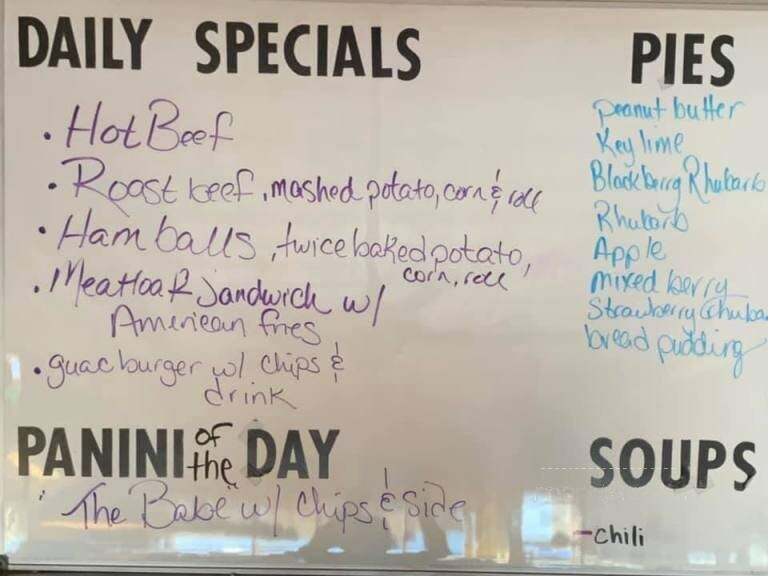 DAILY SPECIALS
• Hot Beef
• Roast beef, mashed potato, corn & roll
• Ham balls, twice baked potato,
corn, roll
• Meatloaf Sandwich w/
American fries
• guac burger w/ chips &
drink
PIES
Peanut butter
Key lime
Blackberry Rhubarb
Rhubarb
Apple
mixed berry
Strawberry Rhuba
bread pudding
PANINI of the DAY
"The Babe" w/ chips & side
SOUPS
- chili